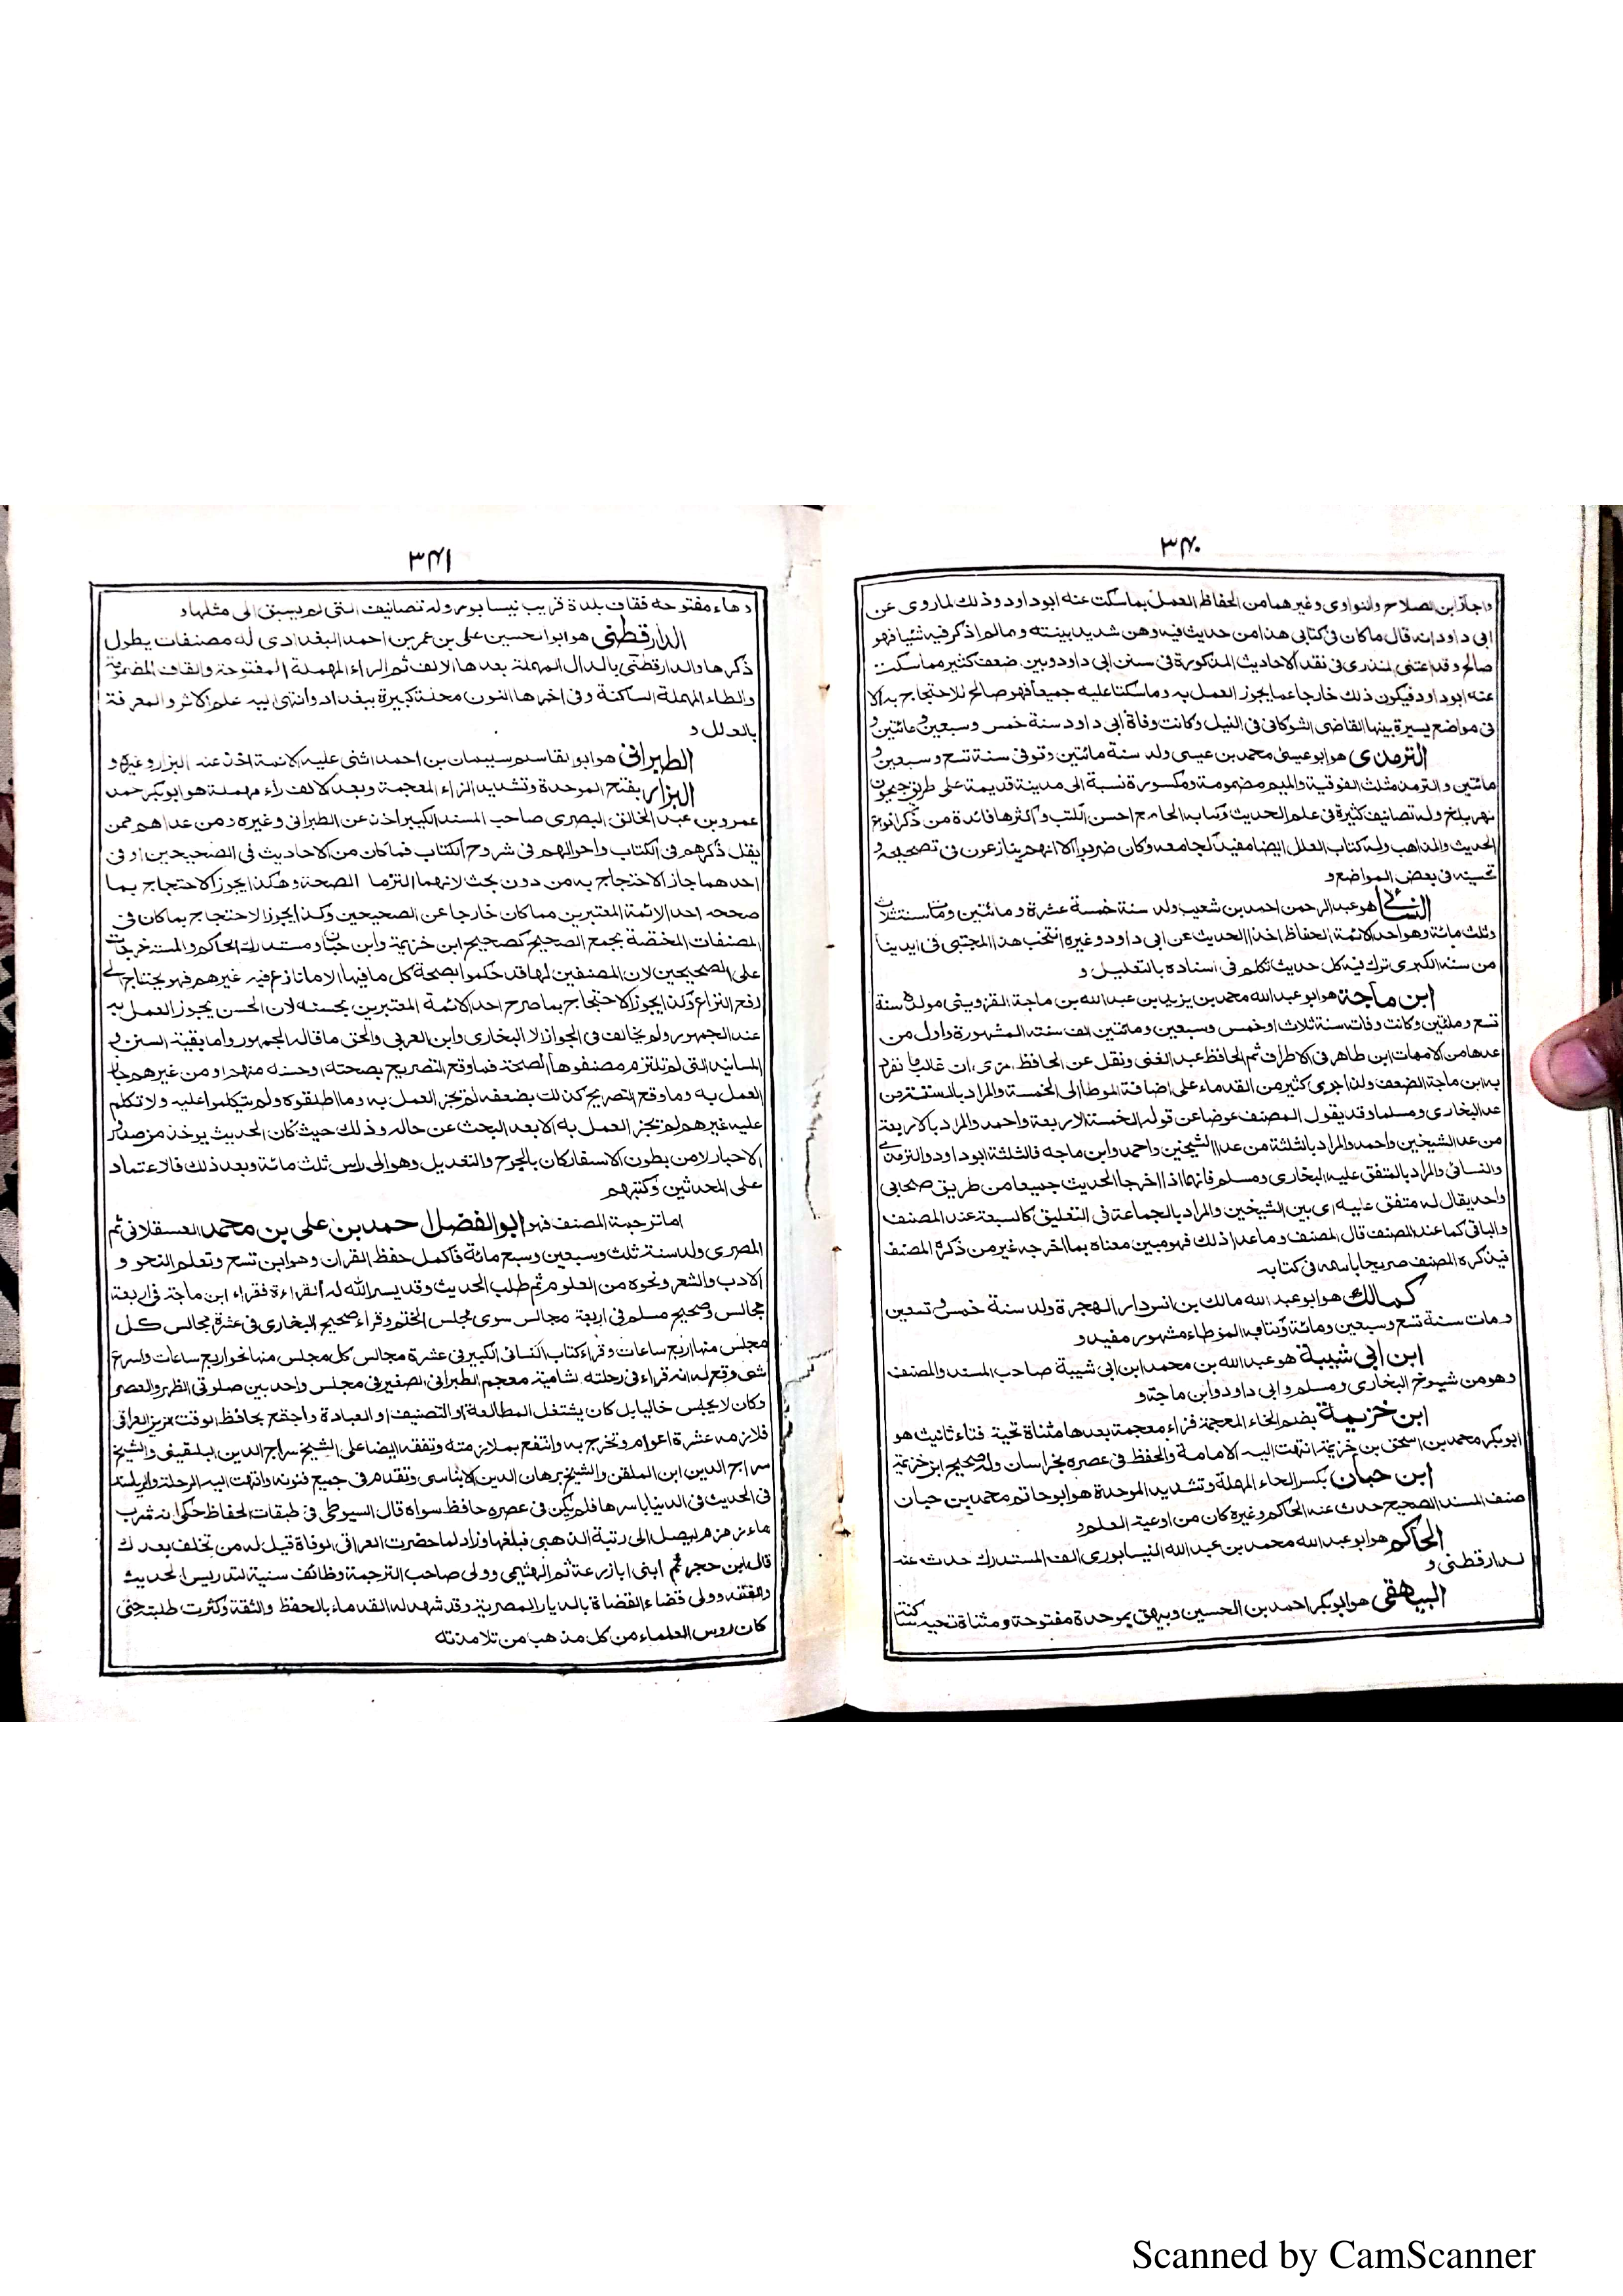 ٣٤٠
واجاز ابن الصلاح والنواوى وغيرهما من الحفاظ العمل بما سكت عنه ابو داود وذلك لما روى عن
ابى داود انه قال ما كان فى كتابى هذا من حديث فيه وهن شديد بينته ومالم اذكر فيه شيئا فهو
صالح وقد اعتنى المنذرى فى نقد الاحاديث المذكورة فى سنن ابى داود وبين ضعف كثير مما سكت
عنه ابو داود فيكون ذلك خارجا عما يجوز العمل به وما سكتا عليه جميعا فهو صالح للاحتجاج به الا
فى مواضع يسيرة بينها القاضى الشوكانى فى النيل وكانت وفاة ابى داود سنة خمس وسبعين ومائتين و
الترمذى هو ابو عيسى محمد بن عيسى ولد سنة مائتين وتوفى سنة تسع وسبعين و
مائتين والترمذ مثلث الفوقية والميم مضمومة ومكسورة نسبة الى مدينة قديمة على طرف جيحون
نهر بلخ وله تصانيف كثيرة فى علم الحديث وكتابه الجامع احسن الكتب واكثرها فائدة من ذكر انواع
الحديث والمذاهب وله كتاب العلل ايضا مفيد كجامعه وكان ضريرا الا انهم ينازعون فى تصحيحه و
تحسينه فى بعض المواضع و
النسائى هو عبد الرحمن احمد بن شعيب ولد سنة خمسة عشرة ومائتين ومات سنة ثلاث
وثلث مائة وهو احد الائمة الحفاظ اخذ الحديث عن ابى داود وغيره انتخب هذا المجتبى فى ايدينا
من سننه الكبرى ترك فيه كل حديث تكلم فى اسناده بالتعليل و
ابن ماجة هو ابو عبد الله محمد بن يزيد بن عبد الله بن ماجة القزوينى مولده سنة
تسع ومائتين وكانت وفاته سنة ثلاث او خمس وسبعين ومائتين الف سننه المشهورة واول من
عدها من الامهات ابن طاهر فى الاطراف ثم الحافظ عبد الغنى ونقل عن الحافظ المزى ان غالب ما تفرد
به ابن ماجة الضعف ولذا جرى كثير من القدماء على اضافة الموطا الى الخمسة والمراد بالستة من
عد البخارى ومسلما وقد يقول المصنف عوضا عن قوله الخمسة الاربعة واحمد والمراد بالاربعة
من عدا الشيخين واحمد والمراد بالثلثة من عدا الشيخين واحمد وابن ماجه فالثلثة ابو داود والترمذى
والنسائى والمراد بالمتفق عليه البخارى ومسلم فانهما اذا اخرجا الحديث جميعا من طريق صحابى
واحد يقال له متفق عليه اى بين الشيخين والمراد بالجماعة فى التعليق كالسبعة عند المصنف
والباقى كما عند المصنف قال المصنف وما عدا ذلك فهو مبين معناه بما اخرجه غير من ذكره المصنف
فيذكره المصنف صريحا باسمه فى كتابه
كمالك هو ابو عبد الله مالك بن انس دار الهجرة ولد سنة خمس وتسعين
ومات سنة تسع وسبعين ومائة وكتابه الموطاء مشهور مفيد و
ابن ابى شيبة هو عبد الله بن محمد ابن ابى شيبة صاحب المسند والمصنف
وهو من شيوخ البخارى ومسلم وابى داود وابن ماجة و
ابن خزيمة بضم الخاء المعجمة فزاء معجمة بعدها مثناة تحية فتاء تانيث هو
ابو بكر محمد بن اسحق بن خزيمة انتهت اليه الامامة والحفظ فى عصره بخراسان وله صحيح ابن خزيمة
ابن حبان بكسر الحاء المهملة وتشديد الموحدة هو ابو حاتم محمد بن حبان
صنف المسند الصحيح حدث عنه الحاكم وغيره كان من اوعية العلم و
الحاكم هو ابو عبد الله محمد بن عبد الله النيسابورى الف المستدرك حدث عنه
الدارقطنى و
البيهقى هو ابو بكر احمد بن الحسين وبيهق بموحدة مفتوحة ومثناة تحية ساكنة
٣٤١
وهاء مفتوحة فقاف بلدة قريب نيسابور وله تصانيف التى لم يسبق الى مثلها و
الدارقطنى هو ابو الحسين على بن عمر بن احمد البغدادى له مصنفات يطول
ذكرها والدارقطنى بالدال المهملة بعدها الالف ثم الراء المهملة المفتوحة والقاف المضمومة
والطاء المهملة الساكنة وفى اخرها النون محلة كبيرة ببغداد وانتهى اليه علم الاثر والمعرفة
بالعلل و
الطبرانى هو ابو القاسم سليمان بن احمد اثنى عليه الائمة اخذ عنه البزار وغيره و
البزار بفتح الموحدة وتشديد الزاء المعجمة وبعد الالف راء مهملة هو ابو بكر احمد
عمرو بن عبد الخالق البصرى صاحب المسند الكبير اخذ عن الطبرانى وغيره ومن عداهم ممن
يقل ذكرهم فى الكتاب واحوالهم فى شروح الكتاب فما كان من الاحاديث فى الصحيحين او فى
احدهما جاز الاحتجاج به من دون بحث لانهما التزما الصحة وهكذا يجوز الاحتجاج بما
صححه احد الائمة المعتبرين مما كان خارجا عن الصحيحين وكذا يجوز الاحتجاج بما كان فى
المصنفات المختصة بجمع الصحيح كصحيح ابن خزيمة وابن حبان ومستدرك الحاكم والمستخرجات
على الصحيحين لان المصنفين لها قد حكموا بصحة كل ما فيها الا ما نازع فيه غيرهم فهو يحتاج الى
رفع النزاع وكذا يجوز الاحتجاج بما صرح احد الائمة المعتبرين بحسنه لان الحسن يجوز العمل به
عند الجمهور ولم يخالف فى الجواز الا البخارى وابن العربى والحق ما قاله الجمهور واما بقية السنن و
المسانيد التى لم يلتزم مصنفوها الصحة فما وقع التصريح بصحته او حسنه منهم او من غيرهم جاز
العمل به وما وقع التصريح كذلك بضعفه لم يجز العمل به وما اطلقوه ولم يتكلموا عليه ولا تكلم
عليه غيرهم لم يجز العمل به الا بعد البحث عن حاله وذلك حيث كان الحديث يوخذ من صدور
الاحبار لا من بطون الاسفار كان بالجرح والتعديل وهو الى راس ثلث مائة وبعد ذلك فالاعتماد
على المحدثين وكتبهم
اما ترجمة المصنف فهو ابو الفضل احمد بن على بن محمد العسقلانى ثم
المصرى ولد سنة ثلث وسبعين وسبع مائة فاكمل حفظ القران وهو ابن تسع وتعلم النحو و
الادب والشعر ونحوه من العلوم ثم طلب الحديث وقد يسر الله له القراءة فقراء ابن ماجة فى اربعة
مجالس وصحيح مسلم فى اربعة مجالس سوى مجلس الختم وقراء صحيح البخارى فى عشرة مجالس كل
مجلس منها اربع ساعات وقراء كتاب النسائى الكبير فى عشرة مجالس كل مجلس منها نحو اربع ساعات واسرع
شى وقع له انه قراء فى رحلته الشامية معجم الطبرانى الصغير فى مجلس واحد بين صلوتى الظهر والعصر
وكان لا يجلس خاليا بل كان يشتغل المطالعة او التصنيف او العبادة واجتمع بحافظ الوقت العراقى
فلازمه عشرة اعوام وتخرج به وانتفع بملازمته وتفقه ايضا على الشيخ سراج الدين البلقينى والشيخ
سراج الدين ابن الملقن والشيخ برهان الدين الابناسى وتقدم فى جميع فنونه وانتهت اليه الرحلة والرياسة
فى الحديث فى الدنيا باسرها فلم يكن فى عصره حافظ سواه قال السيوطى فى طبقات الحفاظ حكى انه شرب
ماء زمزم ليصل الى رتبة الذهبى فبلغها وزاد لما حضرت العراقى الوفاة قيل له من تخلف بعدك
قال ابن حجر ثم ابنى ابا زرعة ثم الهيثمى وولى صاحب الترجمة وظائف سنية لتدريس الحديث
والفقه وولى قضاء القضاة بالديار المصرية وقد شهد له القدماء بالحفظ والثقة وكثرت طلبته حتى
كان روس العلماء من كل مذهب من تلامذته
Scanned by CamScanner